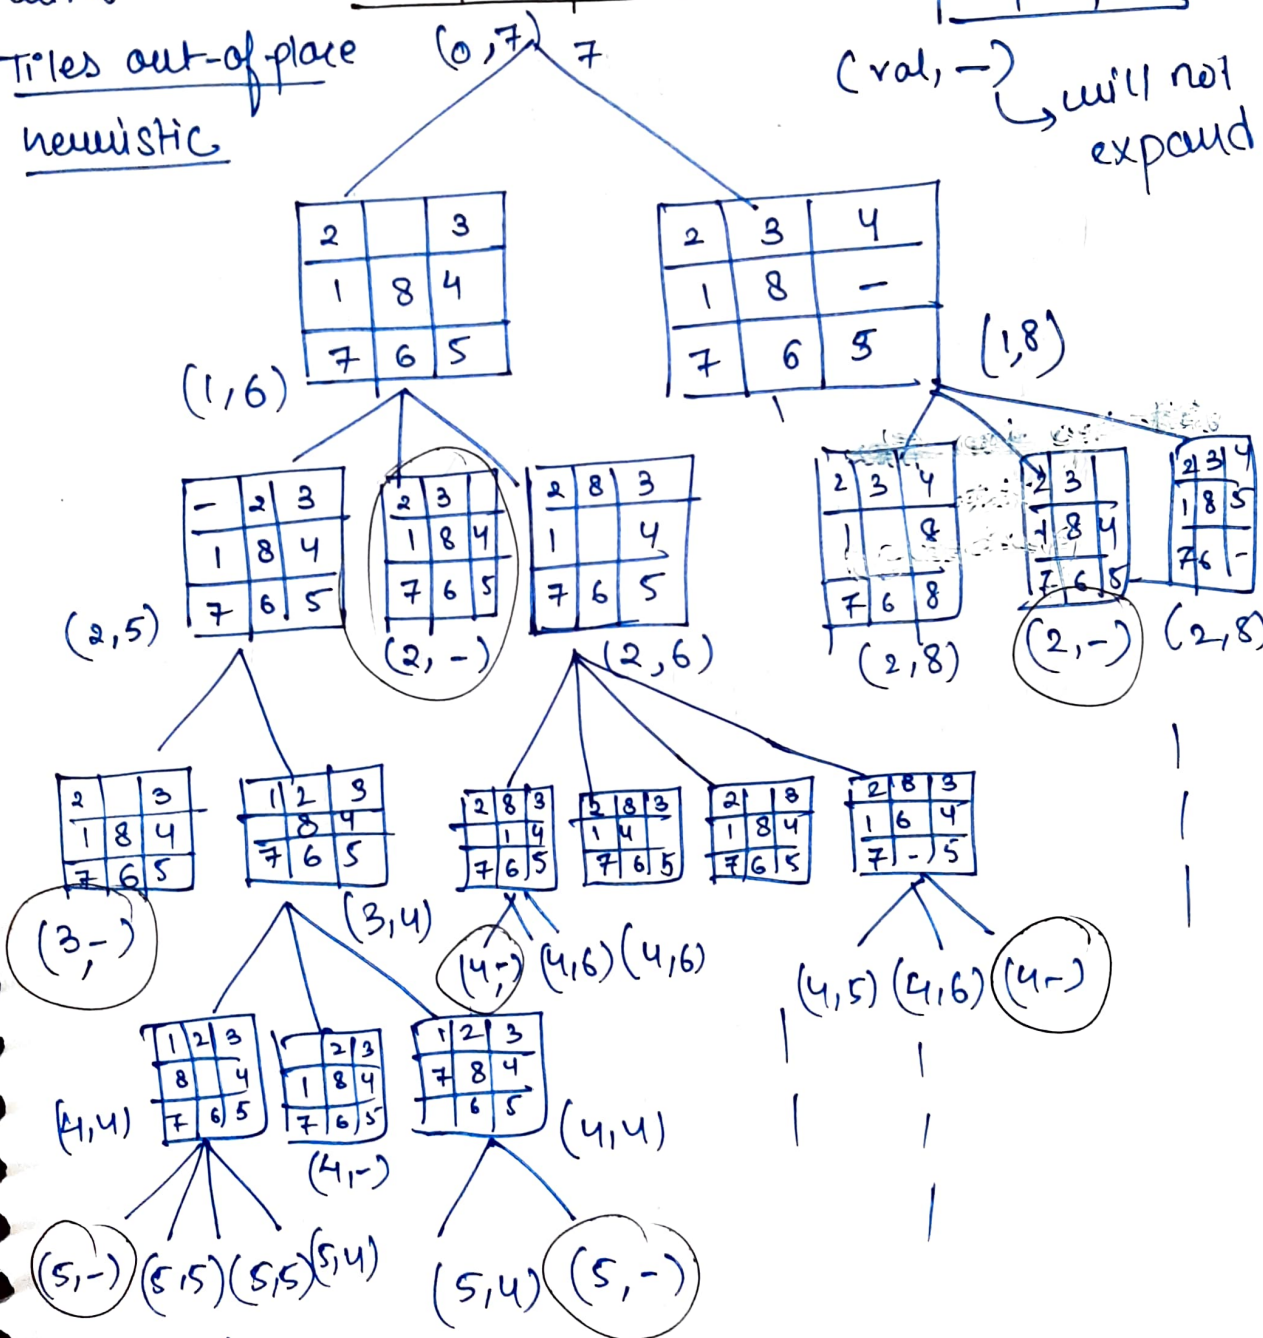 Tiles out-of-place
heuristic
(0,7) 7
(val, -)
will not
expand
2 3
1 8 4
7 6 5
(1,6)
2 3 4
1 8 -
7 6 5
(1,8)
- 2 3
1 8 4
7 6 5
(2,5)
2 3
1 8 4
7 6 5
(2,-)
2 8 3
1 4
7 6 5
(2,6)
2 3 4
1 8
7 6 8
(2,8)
2 3
1 8 4
7 6 5
(2,-)
2 3 4
1 8 5
7 6 -
(2,8)
2 3
1 8 4
7 6 5
(3,-)
1 2 3
8 4
7 6 5
(3,4)
2 8 3
1 4
7 6 5
(4,-) (4,6) (4,6)
2 8 3
1 4
7 6 5
2 3
1 8 4
7 6 5
2 8 3
1 6 4
7 - 5
(4,5) (4,6) (4-)
1 2 3
8 4
7 6 5
(4,4)
2 3
1 8 4
7 6 5
(4,-)
1 2 3
7 8 4
6 5
(4,4)
(5,-) (5,5) (5,5) (5,4)
(5,4) (5,-)